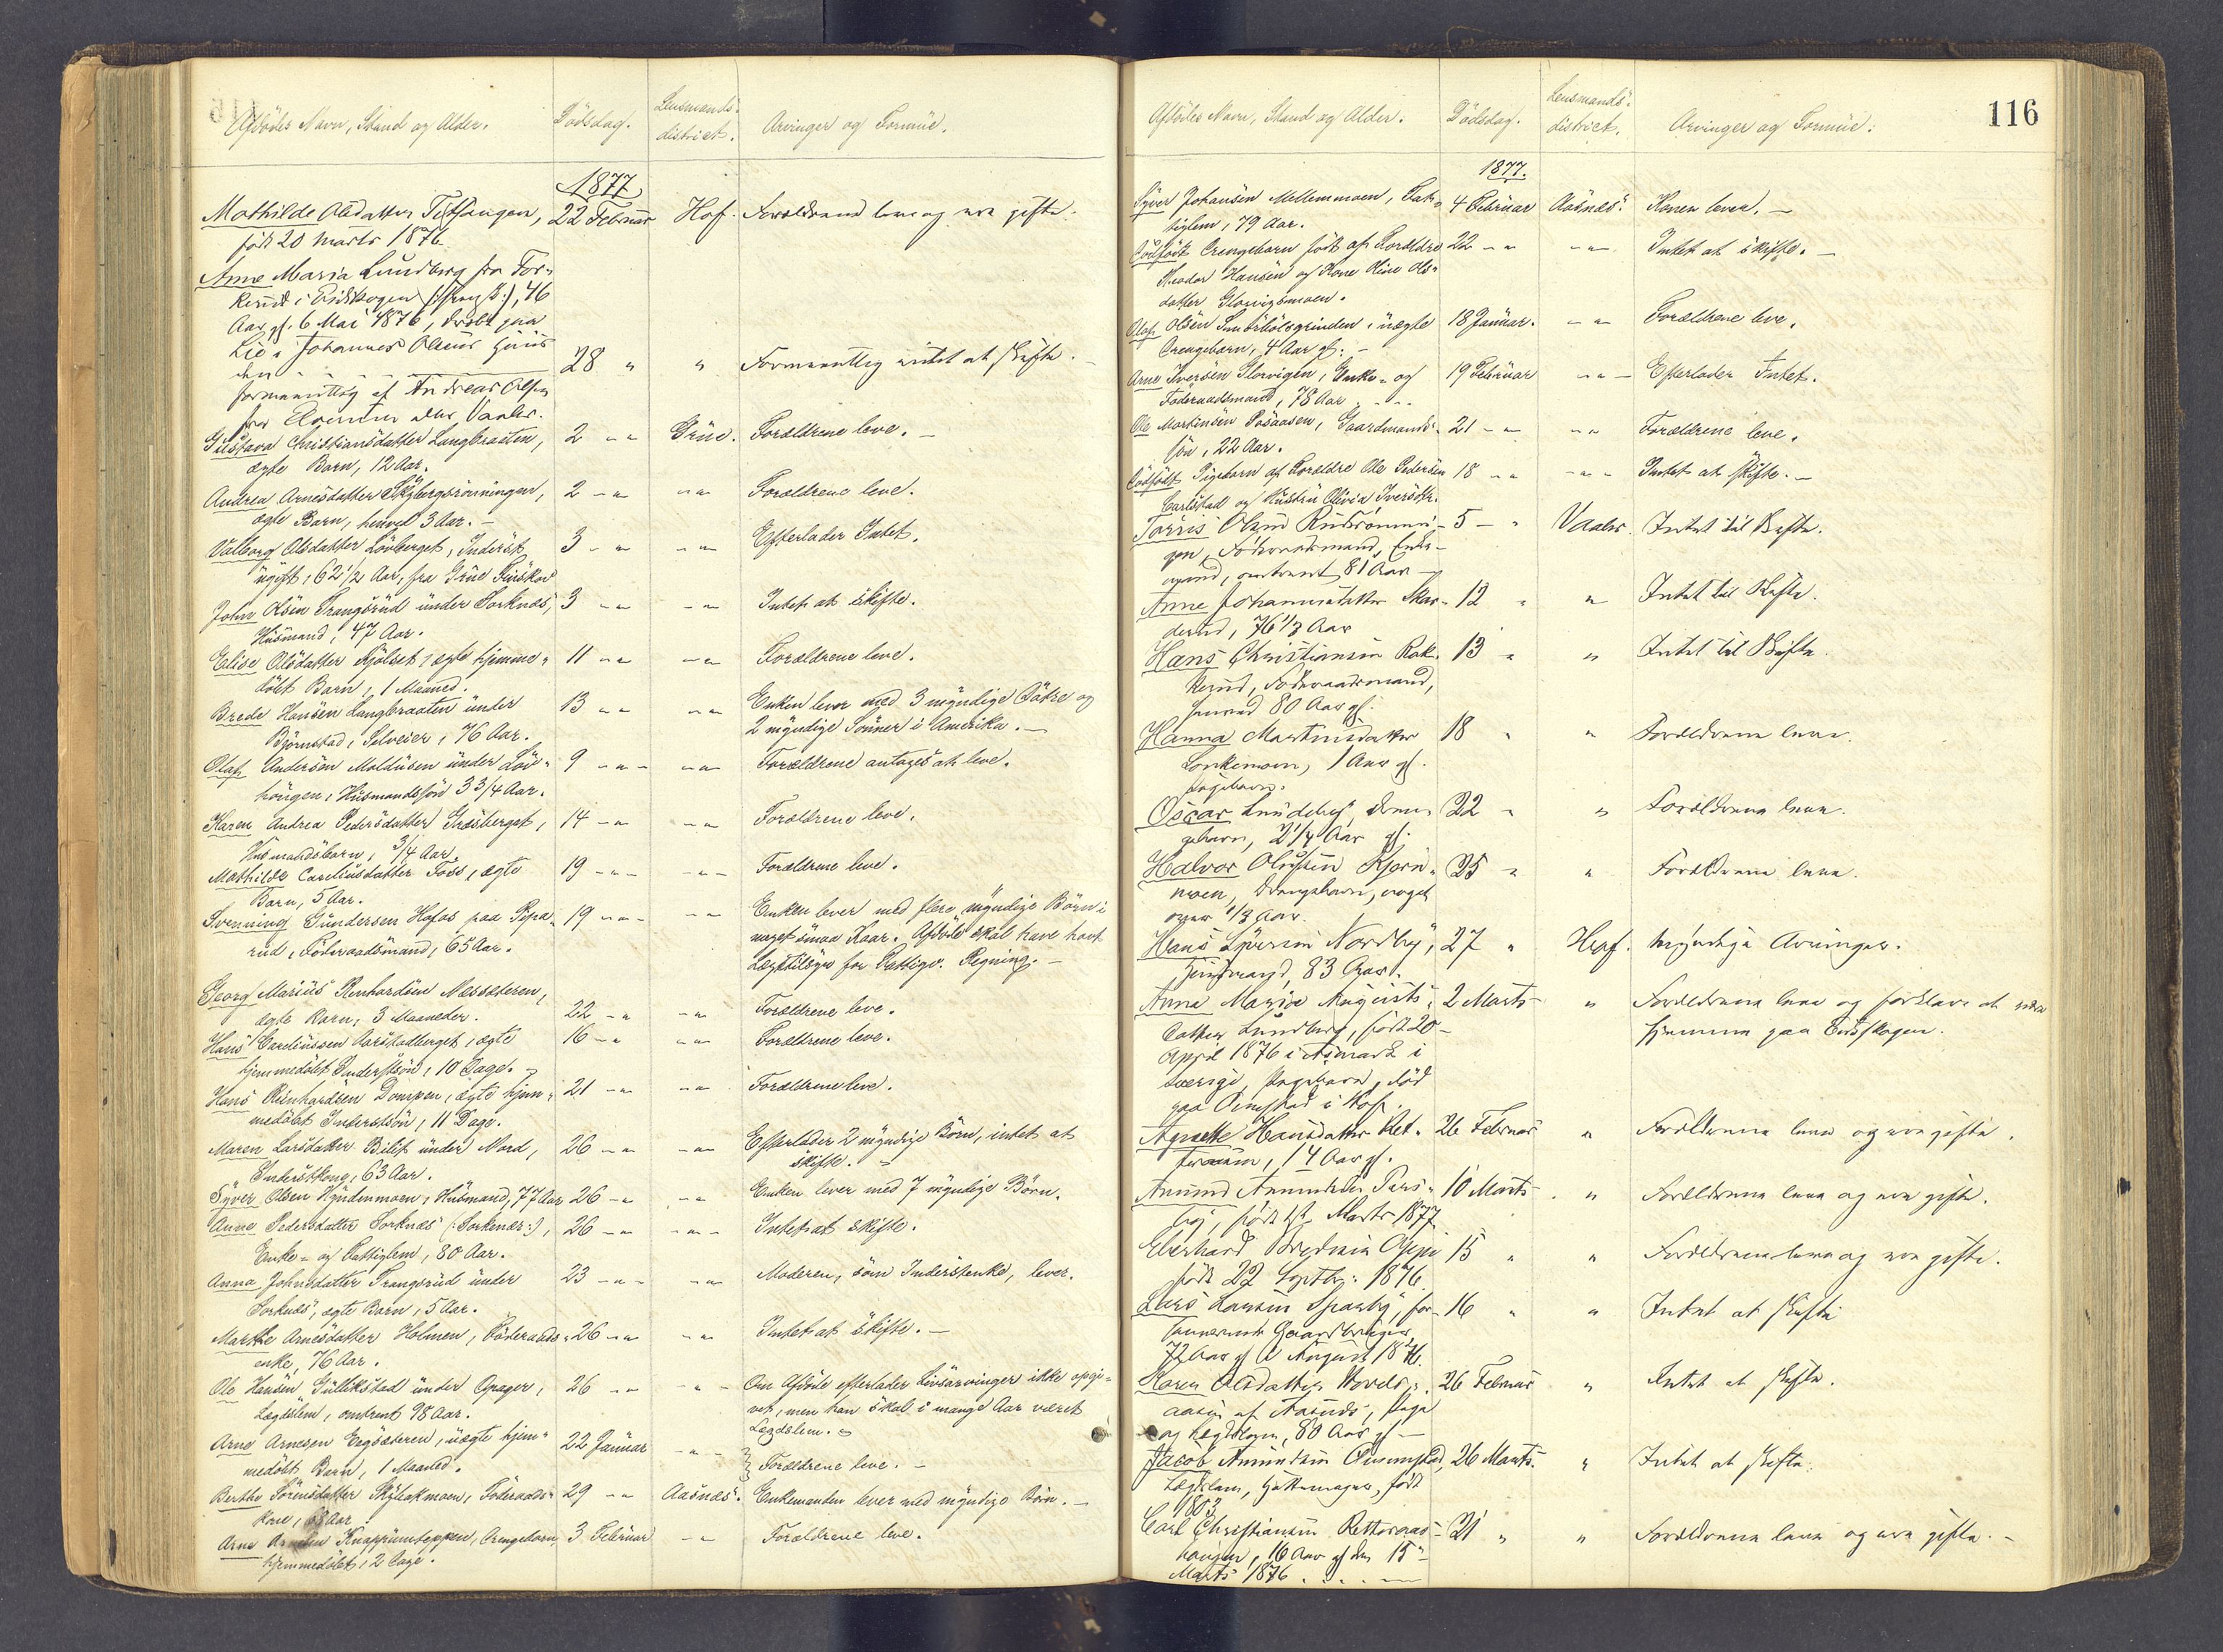 Afdödes Navn, Stand og Alder.
Dödsdag.
Lensmands-
district.
Arvinger og Formue.
1877
Mathilde Olsdatter
22 Februar
Hof.
Forældrene leve og ere gifte.
född 20 Marts 1876
Anne Maria Lundberg fra Tor-
46
Aar gl. 6 Mai 1876, dræbt paa
Lie i Johannes Olsens
28 " " Formeentlig intet at skifte.
formeentlig af Andreas Olsen
fra Elverum eller Vaaler.
Gustava Christiansdatter Langbraaten,
2 - " Grue. Forældrene leve.
ægte Barn, 12 Aar.
Andrea Arnesdatter Skybergsrönningen,
2 - " - " Forældrene leve.
ægte Barn, henved 3 Aar.
Valborg Olsdatter Lövberget, Inderst
3 - " - " Efterlader Intet.
ugift, 62 1/2 Aar, fra Grue Finskov
John Olsen Trangsrud under Sorknæs,
3 - " - " Intet at skifte.
Husmand, 47 Aar.
Elise Olsdatter Kjölset, ægte hjemme-
11 - " - " Forældrene leve.
döbt Barn, 1 Maaned.
Brede Hansen Langbraaten under
13 - " - " Enken lever med 3 myndige Dötre og
Björnstad, Selveier, 76 Aar.
2 myndige Sönner i Amerika.
Olaf Andersen Moldusen under Löv-
9 - " - " Forældrene antages at leve.
haugen, Husmandssön 3 3/4 Aar.
Karen Andrea Pedersdatter Græsberget,
14 - " - " Forældrene leve.
Husmandsbarn, 3/4 Aar.
Mathilde Careliusdatter Foss, ægte
19 - " - " Forældrene leve.
Barn, 5 Aar.
Svenning Gundersen Hofos paa Pipa-
19 - " - " Enken lever med flere myndige Börn i
rud, Föderaadsmand, 65 Aar.
meget smaa Kaar. Afdöde skal have havt
Lægetilsyn for Fattigv. Regning.
Georg Marius Renhardsen Næssæteren,
22 - " - " Forældrene leve.
ægte Barn, 3 Maaneder.
Hans Careliussen Aarstadberget, ægte
16 - " - " Forældrene leve.
hjemmedöbt Inderstsön, 10 Dage.
Hans Reinhardsen Dompen, ægte hjem-
21 - " - " Forældrene leve.
medöbt Inderstsön, 11 Dage.
Maren Larsdatter Bilit under Nord,
26 - " - " Efterlader 2 myndige Börn, intet at
Inderstkone, 63 Aar.
skifte.
Syver Olsen Kyndenmoen, Husmand, 77 Aar
26 - " - " Enken lever med 7 myndige Börn.
Anne Pedersdatter Sorknæs (:Sorkenæs:),
26 - " - " Intet at skifte.
Enke- og Fattiglem, 80 Aar.
Anna Johnsdatter Trangsrud under
23 - " - " Moderen, som Inderstenke, lever.
Sorknæs, ægte Barn, 5 Aar.
Marthe Arnesdatter Holmen, Föderaads-
26 - " - " Intet at skifte.
enke, 76 Aar.
Ole Hansen Gullikstad under Opager,
26 - " - " Om Afdöde efterlader Livsarvinger ikke opgi-
Lægdslem, omtrent 98 Aar.
vet, men han skal i mange Aar været
Lægdslem.
Arne Arnesen Engsæteren, uægte hjem-
22 Januar - " Forældrene leve.
medöbt Barn, 1 Maaned.
Berthe Sörensdatter Skybakmoen, Föderaads-
29 - " Aasnæs. Enkemanden lever med myndige Börn.
kone, 68 Aar
Arne Knappumseppen, Drengebarn,
3 Februar - " Forældrene leve.
hjemmedöbt, 2 Dage.
116
Afdödes Navn, Stand og Alder.
Dödsdag.
Lensmands-
district.
Arvinger og Formue.
1877.
Syver Johansen Mellemmoen, Fat-
4 Februar Aasnæs. Konen lever.
tiglem, 79 Aar.
Dödfödt Drengebarn födt af Forældre
22 - " - " Intet at skifte.
Theodor Hansen og Kone Oline Ols-
datter Glorvigsmoen.
Olaf Olsen Smörhölsgrinden, uægte
18 Januar. - " Forældrene leve.
Drengebarn, 4 Aar gl.
Arne Iversen Glorvigen, Enke- og
19 Februar - " Efterlader Intet.
Föderaadsmand, 78 Aar
Ole Martinsen Posaasen, Gaardmands-
21 - " - " Forældrene leve.
sön, 22 Aar.
Dödfödt Pigebarn af Forældre Ole Pedersen
18 - " - " Intet at skifte.
Carlstad og Hustru Olivia Iversdtr.
Torris Olsen Rudsrönnin-
5 - " Vaaler. Intet til Skifte.
gen, Föderaadsmand, Enke-
mand, omtrent 81 Aar
Anne Johannesdatter Skas-
12 " " Intet til Skifte.
derud, 76 1/3 Aar
Hans Christiansen Rak-
13 " " Intet til Skifte.
kerud, Föderaadsmand,
henved 80 Aar gl.
Hanna Martinsdatter
18 " " Forældrene leve.
1 Aar gl.
Pigebarn.
Oscar Lundeby, Dren-
22 " " Forældrene leve.
gebarn, 2 1/4 Aar gl.
Halvor Olufsen Kjern-
25 " " Forældrene leve.
moen, Drengebarn, noget
over 1/3 Aar.
Hans Syversen Nordby,
27 " Hof. Myndige Arvinger.
83 Aar.
Anna Maria Augusts-
2 Marts " Forældrene leve og forklare at være
datter Lundberg, födt 20
hjemme paa Eidskogen.
April 1876 i
Sverige, Pigebarn, död
i Hof.
Agnethe Hansdatter
26 Februar " Forældrene leve og ere gifte.
14 Aar gl.
Amund Amundsen
10 Marts " Forældrene leve og ere gifte.
födt Marts 1877
Eberhard Bredesen
15 " " Forældrene leve og ere gifte.
födt 22 Septbr: 1876.
Lars Larsen Sparby, for-
16 " " Intet at skifte
henværende Gaardbruger,
72 Aar gl August 1876.
Karen Olsdatter
26 Februar " Intet at skifte.
af Aasnæs, Pige
og Lægdslem, 80 Aar gl
Jacob Amundsen
26 Marts. " Intet at skifte.
Lægdslem, födt
1803
Carl Christiansen
21 " " Forældrene leve og ere gifte.
haugen, 16 Aar gl den 15
Marts 1876